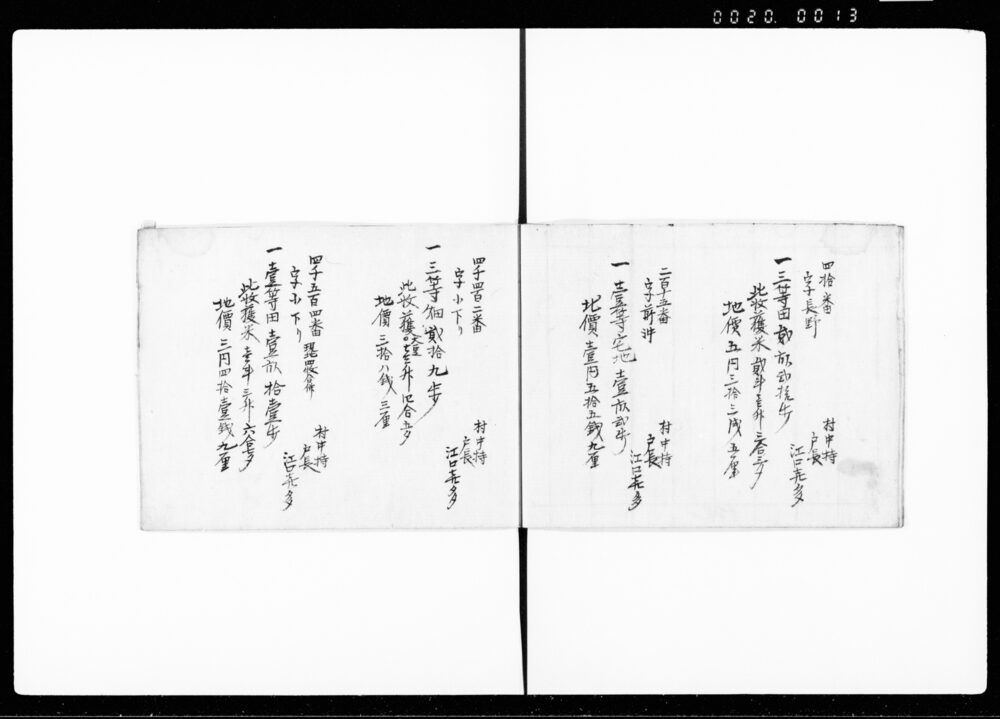 0020. 0013
四拾六番
字長野
一三等田貳畝卽拾歩
此收穫米貳斗壹升三合三夕
地價五円三拾三戋五厘
村中持
戸長
江口壵多
二百十五番
字前沖
一壹等宅地壹畝弐歩
地價壹円五拾五錢九厘
村中持
戸長
江口壵多
四千四百二番
字小下リ
一三等畑貳拾九歩
此收護大豆壹升四合五夕
地價三拾八錢三厘
村中持
戸長
江口壵多
四千五百四番
字小下リ
一壹等田壹畝拾壹歩
此收護米壹斗三升六合
地價三円四拾壹錢九厘
村中持
戸長
江口壵多